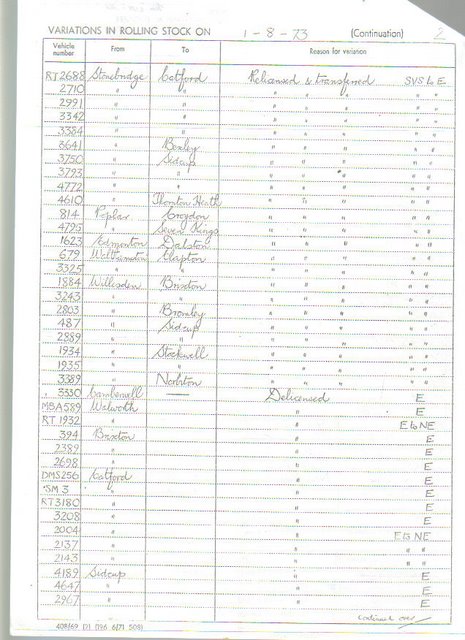 VARIATIONS IN ROLLING STOCK ON 1-8-73 (Continuation) 2
Vehicle number From To Reason for variation
RT2688 Stonebridge Catford Relicensed & transferred SVS to E
2710 " " " " " " "
2991 " " " " " " "
3342 " " " " " " "
3384 " " " " " " "
3641 " Bexley " " " " "
3750 " Sidcup " " " " "
3793 " " " " " " "
4772 " " " " " " "
4610 " Thornton Heath " " " " "
814 Poplar Croydon " " " " "
4795 " Seven Kings " " " " "
1623 Edmonton Dalston " " " " "
679 Walthamstow Clapton " " " " "
3325 " " " " " " "
1884 Willesden Brixton " " " " "
3243 " " " " " " "
2803 " Bromley " " " " "
487 " Sidcup " " " " "
2889 " " " " " " "
1934 " Stockwell " " " " "
1935 " " " " " " "
3389 " Norbiton " " " " "
3330 Camberwell — Delicensed E
MBA589 Walworth " E
RT 1932 " " E to NE
394 Brixton " E
2389 " " E
2698 " " E
DMS256 Catford " E
SM 3 " " E
RT3180 " " E
3208 " " E
2004 " " E to NE
2137 " " " "
2143 " " " "
4189 Sidcup " E
4647 " " E
2967 " " E
continued over
408/69 D1 D96 6/71 50B)